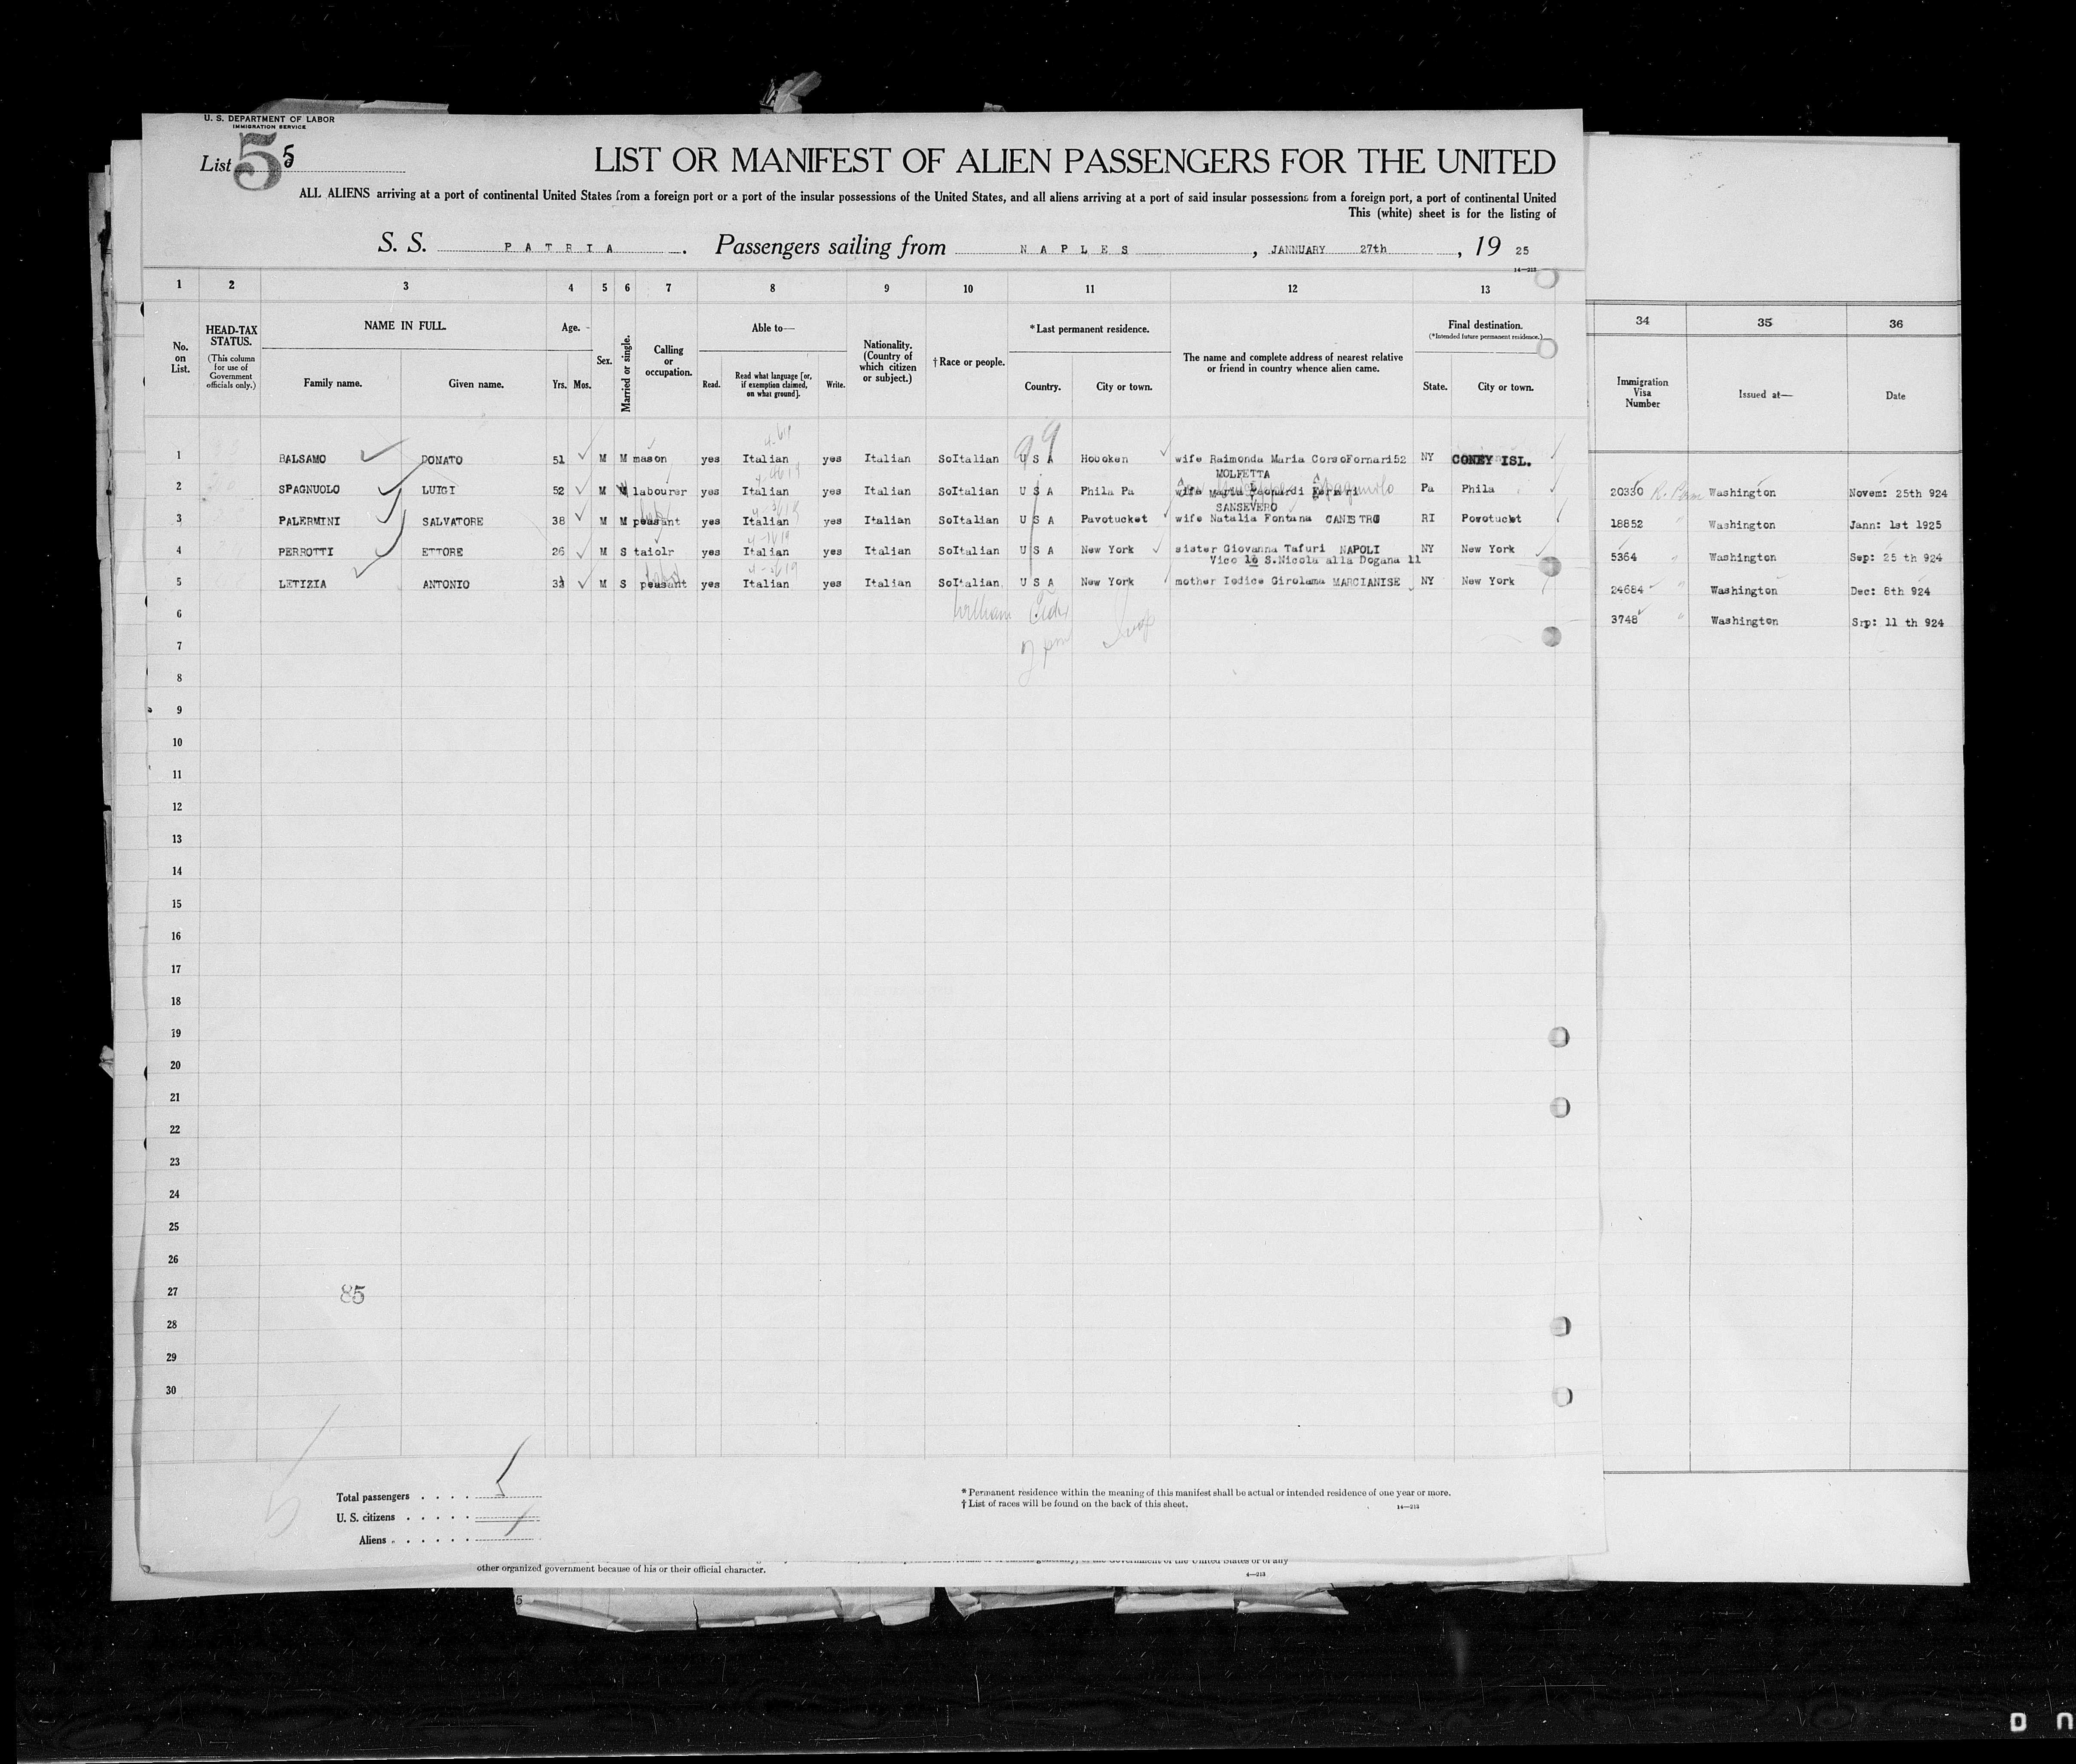 U. S. DEPARTMENT OF LABOR
IMMIGRATION SERVICE
List 5 5
LIST OR MANIFEST OF ALIEN PASSENGERS FOR THE UNITED
ALL ALIENS arriving at a port of continental United States from a foreign port or a port of the insular possessions of the United States, and all aliens arriving at a port of said insular possessions from a foreign port, a port of continental United
This (white) sheet is for the listing of
S. S. PATRIA. Passengers sailing from NAPLES, JANNUARY 27th, 19 25
14—213
1 2 3 4 5 6 7 8 9 10 11 12 13 34 35 36
No. on List. HEAD-TAX STATUS. (This column for use of Government officials only.) NAME IN FULL. Family name. Given name. Age. Yrs. Mos. Sex. Married or single. Calling or occupation. Able to— Read. Read what language [or, if exemption claimed, on what ground]. Write. Nationality. (Country of which citizen or subject.) † Race or people. *Last permanent residence. Country. City or town. The name and complete address of nearest relative or friend in country whence alien came. Final destination. (*Intended future permanent residence.) State. City or town. Immigration Visa Number Issued at— Date
99
1 BALSAMO DONATO 51 M M mason yes Italian yes Italian SoItalian U S A Hoboken wife Raimonda Maria CorsoFornari52 NY CONEY ISL.
MOLFETTA
2 SPAGNUOLO LUIGI 52 M M labourer yes Italian yes Italian SoItalian U S A Phila Pa wife Maria Leonardi Fernri Spagnuolo Pa Phila 20330 Washington Novem: 25th 924
SANSEVERO
3 PALERMINI SALVATORE 38 M M peasant yes Italian yes Italian SoItalian U S A Pavotucket wife Natalia Fontana CANISTRO RI Powotucket 18852 Washington Jann: 1st 1925
4 PERROTTI ETTORE 26 M S taiolr yes Italian yes Italian SoItalian U S A New York sister Giovanna Tafuri NAPOLI NY New York 5364 Washington Sep: 25 th 924
Vico 1o S.Nicola alla Dogana 11
5 LETIZIA ANTONIO 33 M S peasant yes Italian yes Italian SoItalian U S A New York mother Iodice Girolama MARCIANISE NY New York 24684 Washington Dec: 8th 924
6 William 3748 Washington Srp: 11 th 924
7
8
9
10
11
12
13
14
15
16
17
18
19
20
21
22
23
24
25
26
27
85
28
29
30
Total passengers
U. S. citizens
Aliens
* Permanent residence within the meaning of this manifest shall be actual or intended residence of one year or more.
† List of races will be found on the back of this sheet.
14—213
other organized government because of his or their official character.
4—213